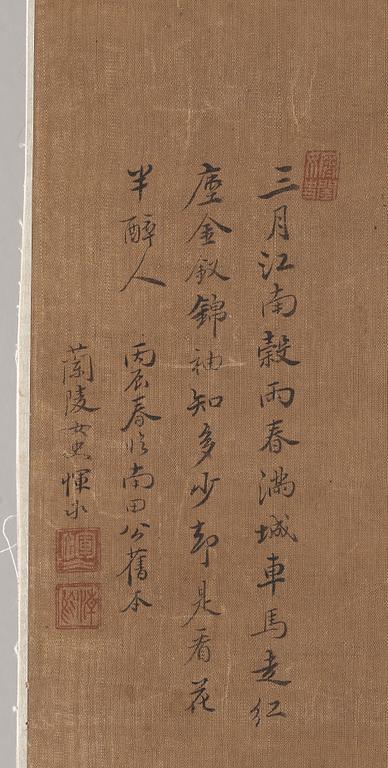 三月江南穀雨春滿城車馬走紅
塵金釵錦袖知多少却是看花
半醉人 丙辰春臨南田公舊本
蘭陵女史惲冰